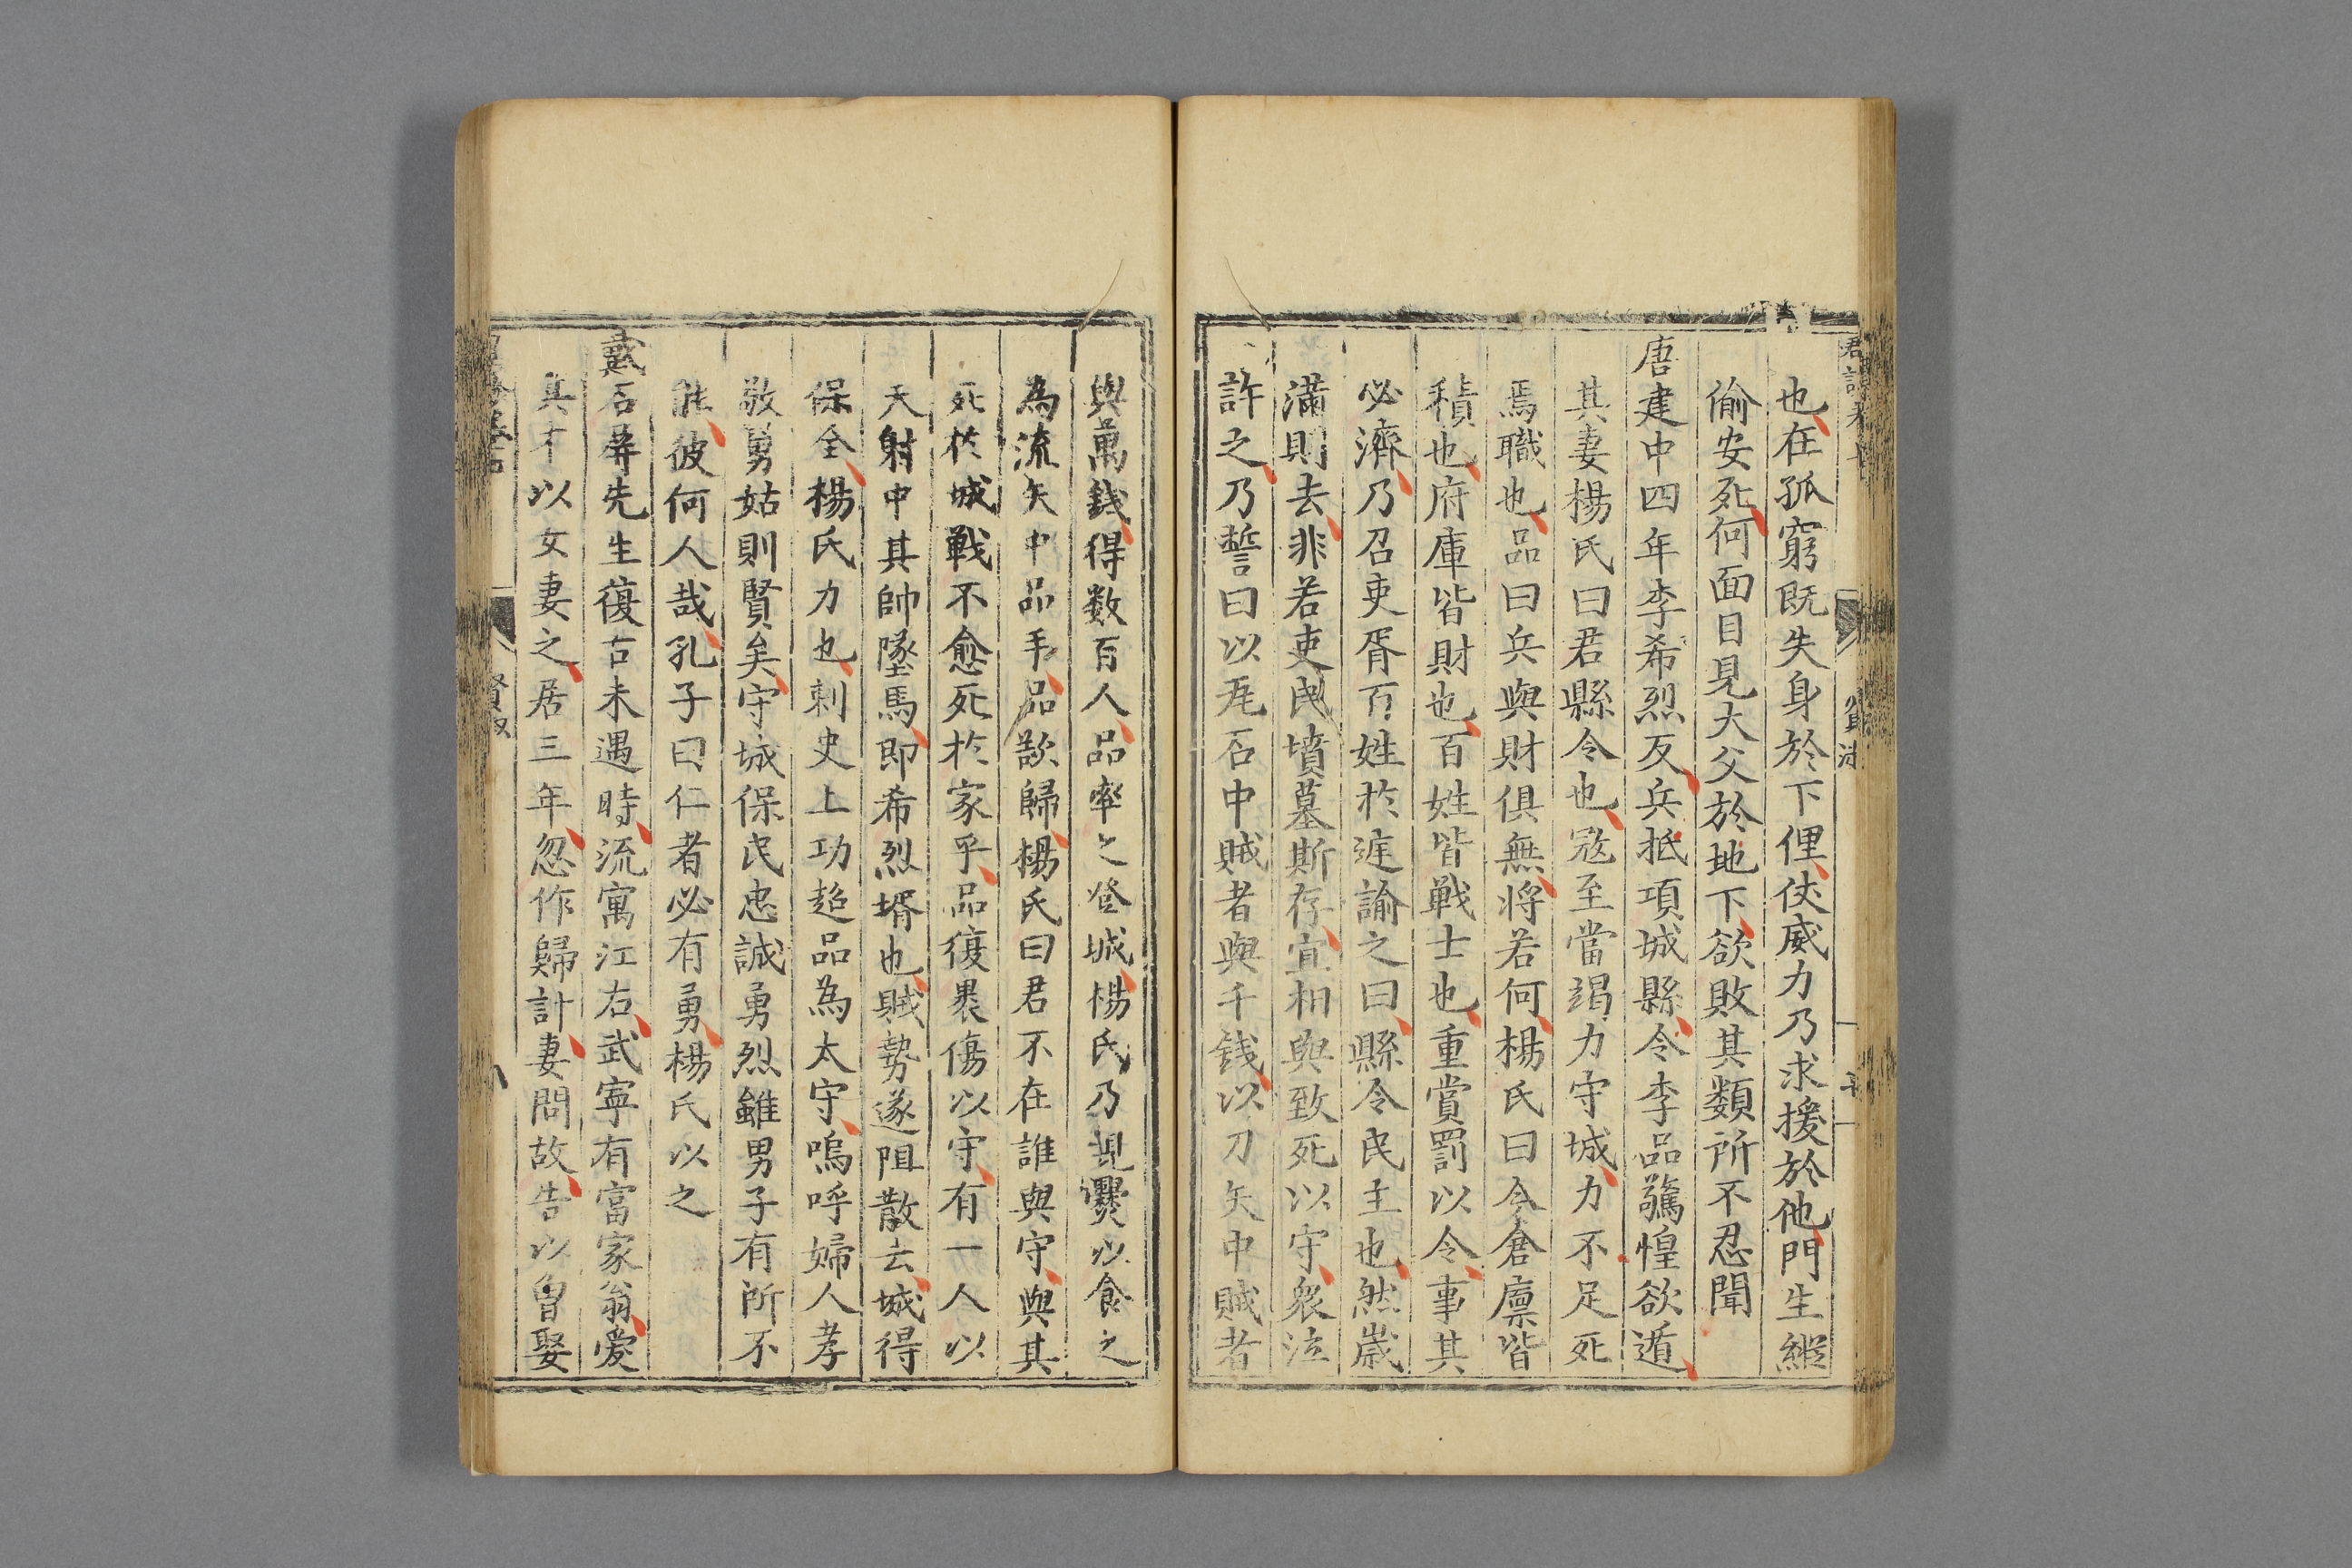 也在孤窮既失身於下俚使威力乃求援於他門生縱
偷安死何面目見大父於地下欲敗其類所不忍聞
唐建中四年李希烈反兵抵項城縣令李品驚惶欲遁
其妻楊氏曰君縣令也寇至當竭力守城力不足死
焉職也品曰兵與財俱無將若何楊氏曰今倉廩皆
積也府庫皆財也百姓皆戰士也重賞罰以令事其
必濟乃召吏胥百姓於廷諭之曰縣令民主也然歲
滿則去非若吏民墳墓斯存宜相與致死以守衆泣
許之乃誓曰以瓦石中賊者與千錢以刀矢中賊者
與萬錢得数百人品率之登城楊氏乃親爨以食之
為流矢中品手品欲歸楊氏曰君不在誰與守與其
死於城戰不愈死於家乎品復褁傷以守有一人以
矢射中其帥墜馬即希烈壻也賊勢遂阻散去城得
保全楊氏力也刺史上功超品為太守嗚呼婦人孝
敬舅姑則賢矣守城保民忠誠勇烈雖男子有所不
能彼何人哉孔子曰仁者必有勇楊氏以之
戴石屏先生復古未遇時流寓江右武寧有富家翁愛
其才以女妻之居三年忽作歸計妻問故告以曾娶